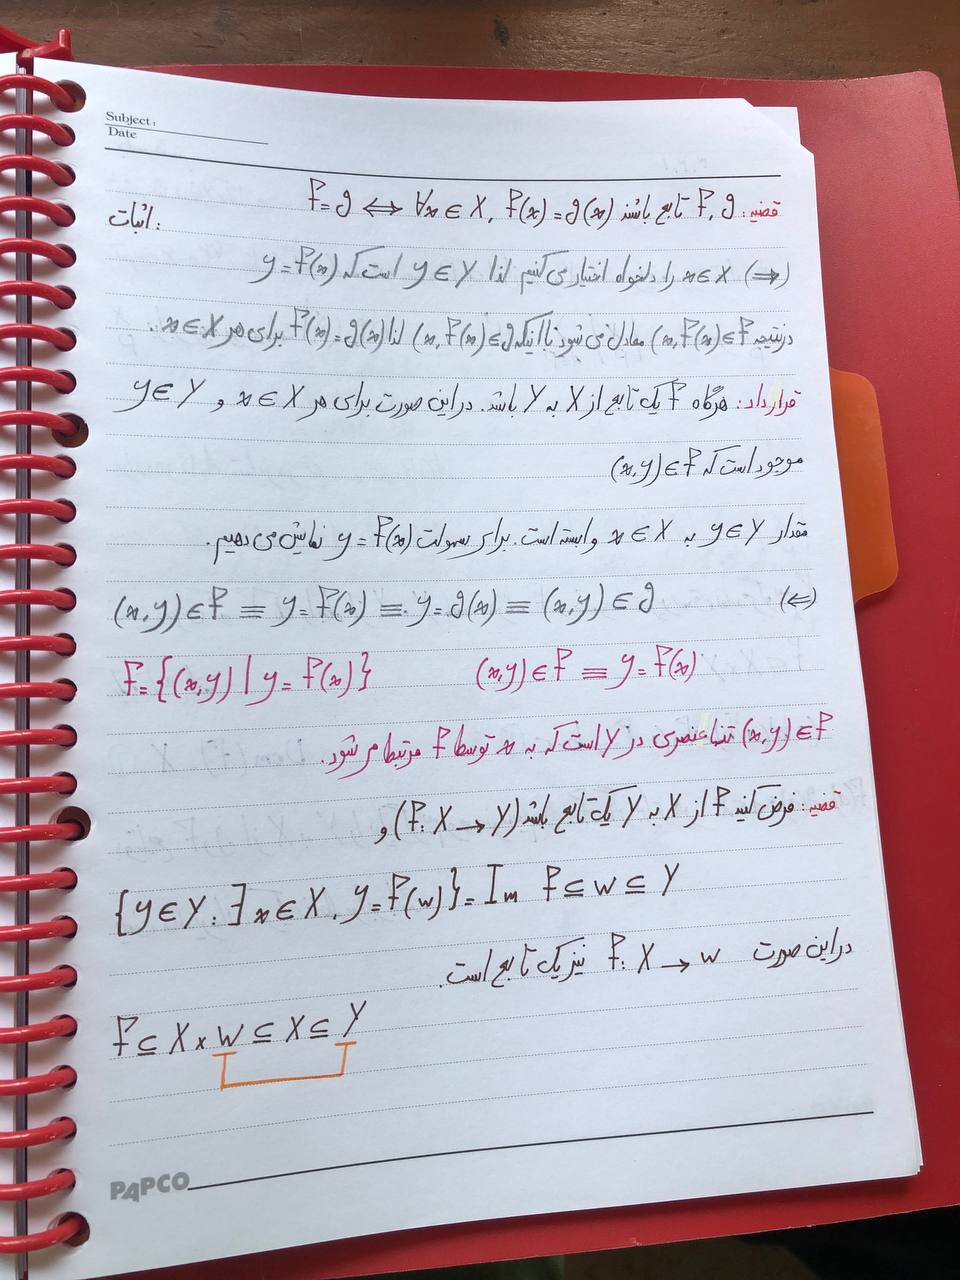 Subject:
Date
قضیه: f, g تابع باشند f = g ⟺ ∀x ∈ X, f(x) = g(x)
اثبات:
(⇒) x ∈ X را دلخواه اختیار می کنیم لذا y ∈ Y است که y = f(x)
درنتیجه (x, f(x)) ∈ f معادل می شود با اینکه (x, f(x)) ∈ g لذا f(x) = g(x) برای هر x ∈ X.
قرارداد: هرگاه f یک تابع از X به Y باشد. در این صورت برای هر x ∈ X و y ∈ Y
موجود است که (x, y) ∈ f
مقدار y ∈ Y به x ∈ X وابسته است. برای سهولت y = f(x) نمایش می دهیم.
(⇐) (x, y) ∈ f ≡ y = f(x) ≡ y = g(x) ≡ (x, y) ∈ g
f = {(x, y) | y = f(x)} (x, y) ∈ f ≡ y = f(x)
(x, y) ∈ f تنها عنصری در Y است که به x توسط f مرتبط می شود.
قضیه: فرض کنید f از X به Y یک تابع باشد (f: X → Y) و
{y ∈ Y : ∃x ∈ X, y = f(w)} = Im f ⊆ w ⊆ Y
در این صورت f: X → w نیز یک تابع است.
f ⊆ X × W ⊆ X ⊆ Y
PAPCO